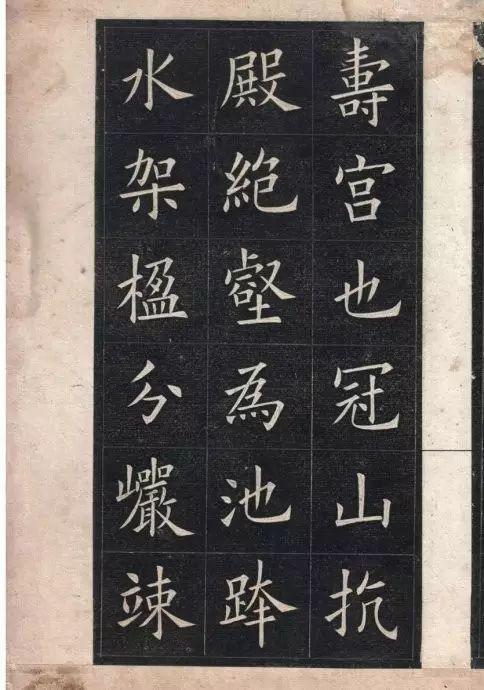 壽宮也冠山抗
殿絕壑為池跨
水架楹分巖竦